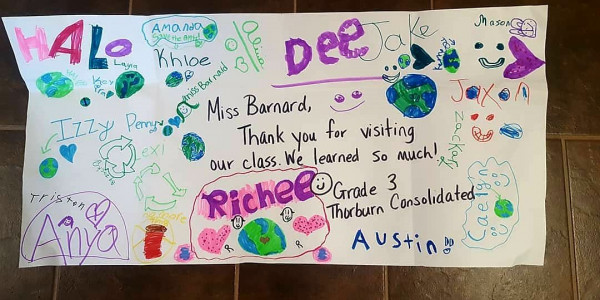 HALO
Layla
Amanda
Khloe
Miss Barnard
DEE
Jake
Mason
Izzy
Penny
Lexi
Miss Barnard,
Thank you for visiting
our class. We learned so much!
Grade 3
Thorburn Consolidated
Jaxon
Zackary
Richee
Caelyn
Triston
Anya
Austin